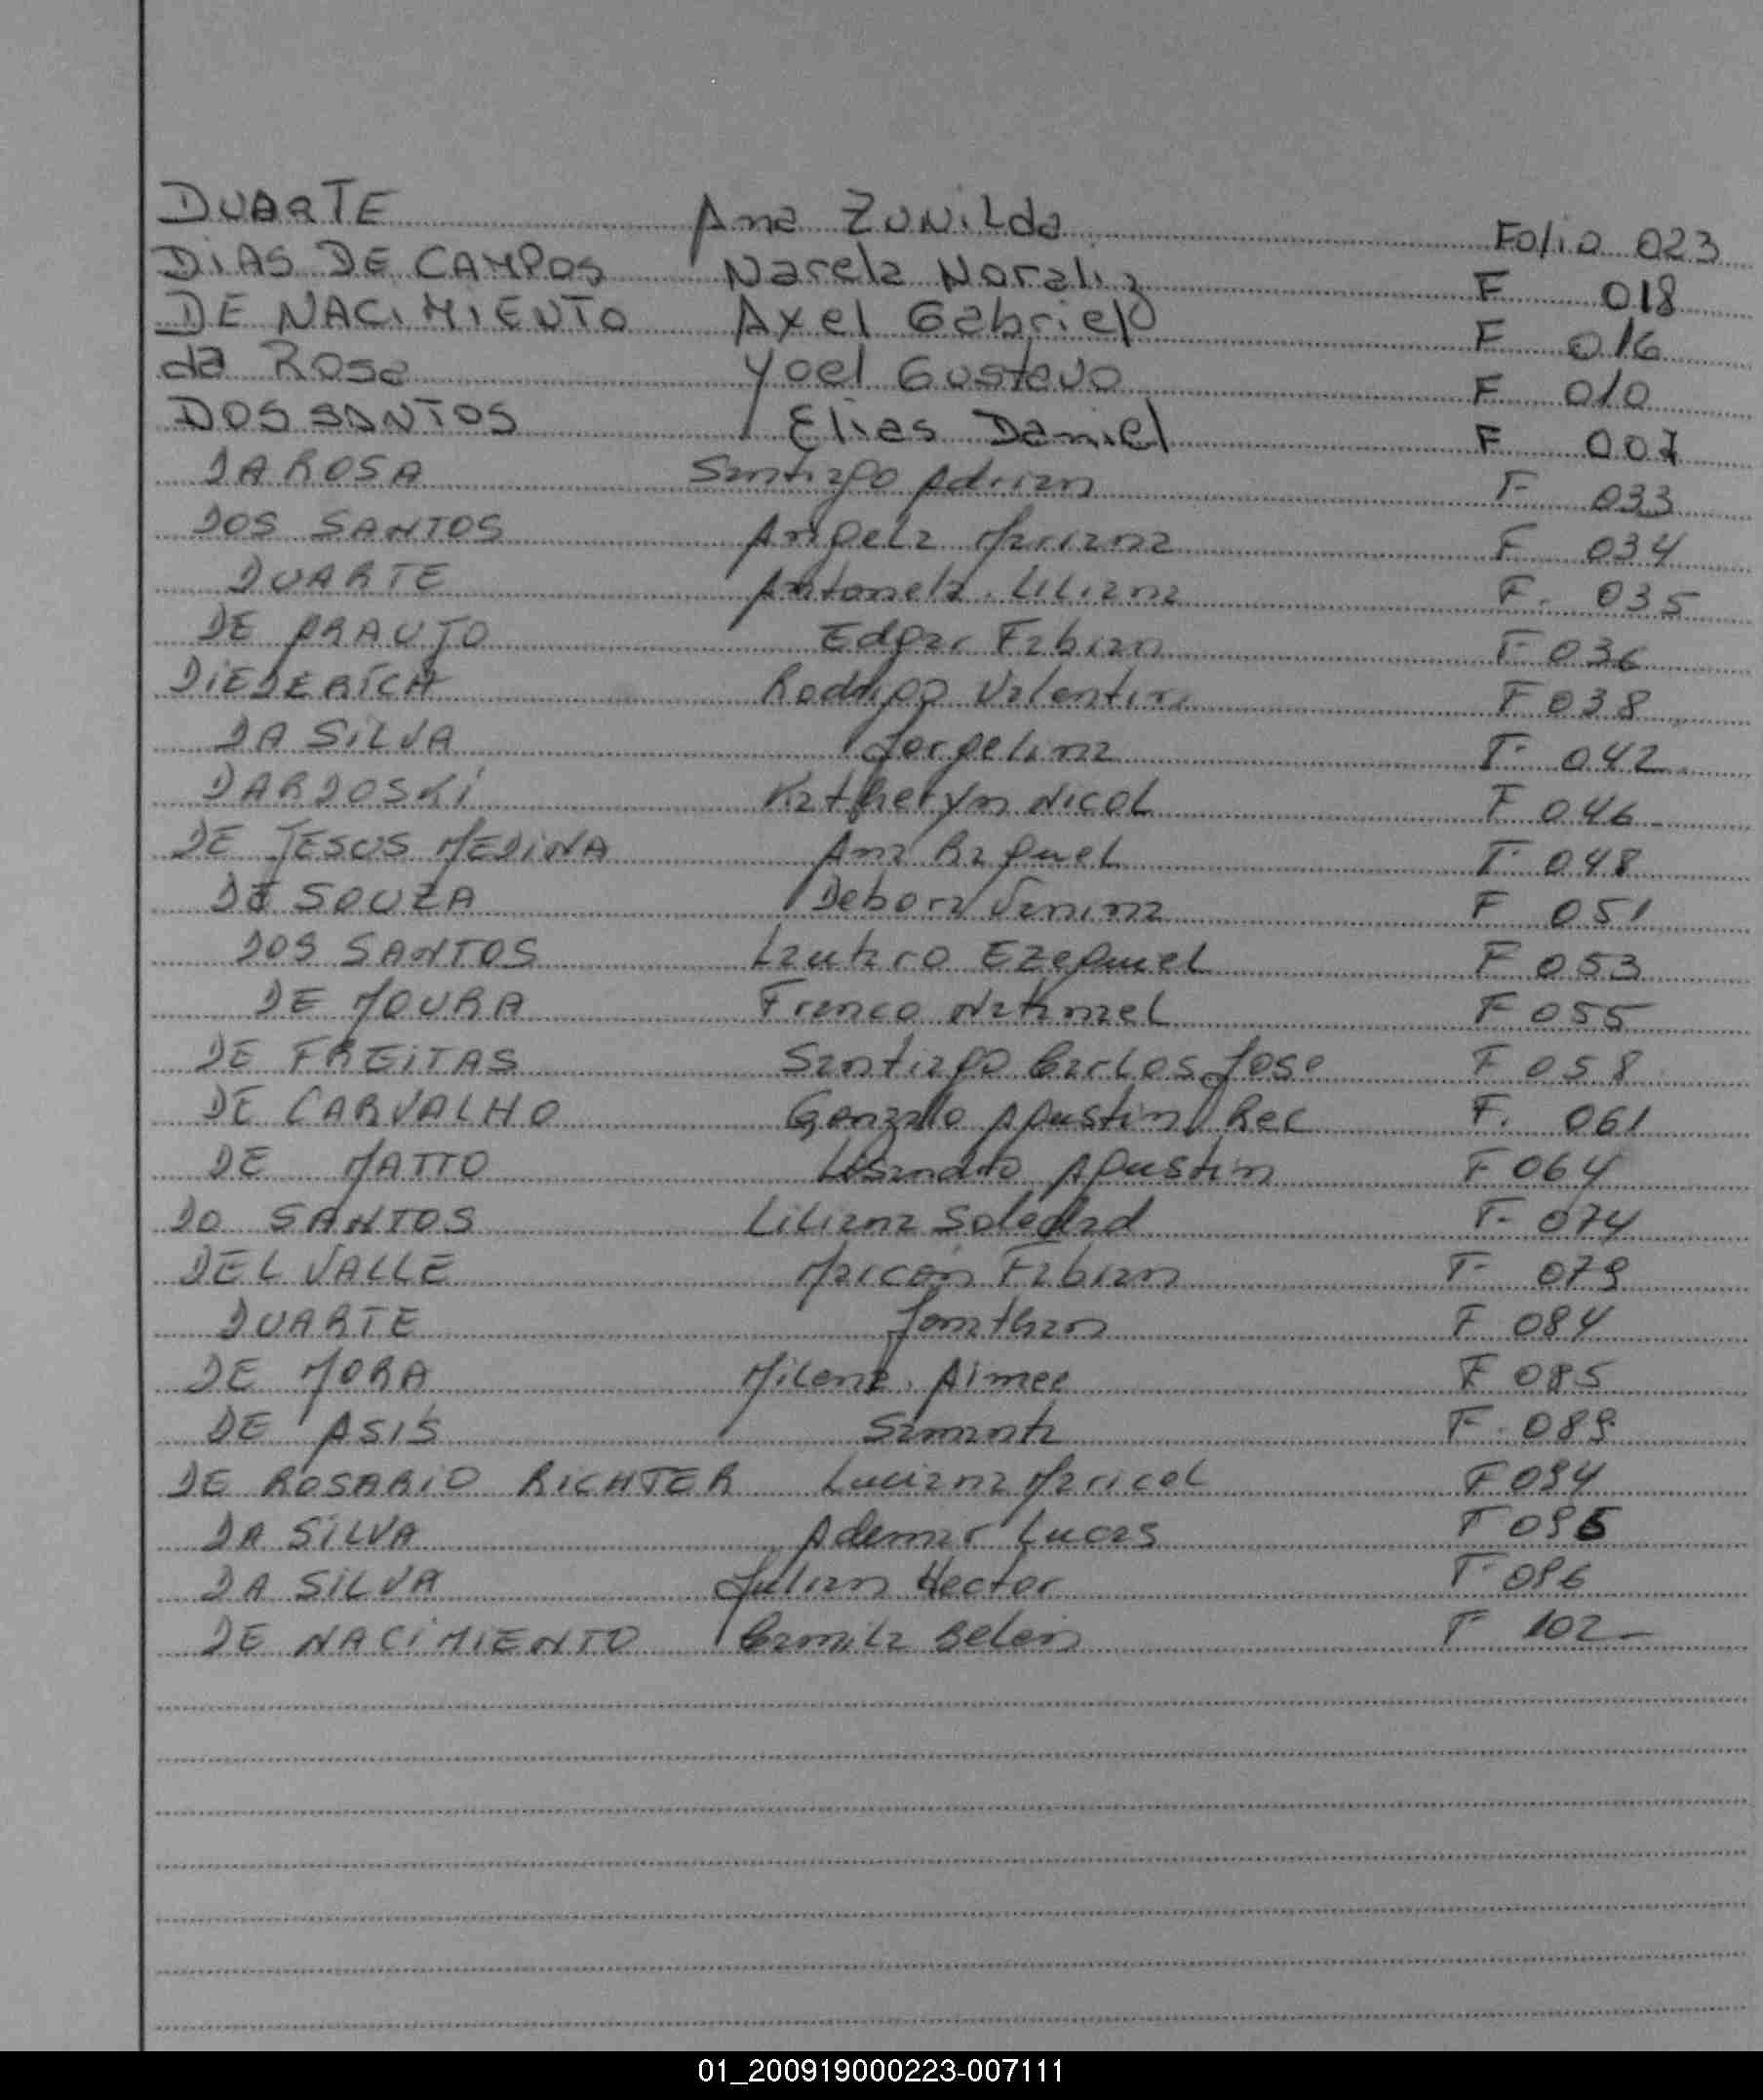 DUARTE Ana ZUNILda Folio 023
DiAS DE CAMPOS Narela Noraliz F 018
DE NACIMIENTO Axel Gabriel F 016
da Rosa Yoel Gustavo F 010
DOS SANTOS Elias Daniel F 007
DA ROSA Santiago Adrian F 033
DOS SANTOS Angela Mariana F 034
DUARTE Antonela Liliana F. 035
DE ARAUJO Edgar Fabian F 036
DiEDERICH Rodrigo Valentin F 038
DA SiLVA Jorgelina F 042
DARDOSKi Katheryn Nicol F 046
DE JESUS MEDiNA Ana Raquel F 048
DE SOUZA Debora Janina F 051
DOS SANTOS Lautaro Ezequiel F 053
DE MOURA Franco Natanael F 055
DE FREiTAS Santiago Carlos Jose F 058
DE CARVALHO Gonzalo Agustin Rec F. 061
DE MATTO Lisandro Agustin F 064
DO SANTOS Liliana Soledad F- 074
DEL VALLE Marcon Fabian F 079
DUARTE Jonathan F 084
DE MORA Milena Aimee F 085
DE ASIS Samanta F 089
DE ROSARiO RiCHTER Luciana Maricel F 094
DA SiLVA Ademar Lucas F 095
DA SiLVA Julian Hector F 096
DE NACiMiENTO Camila Belen F 102-
01_200919000223-007111